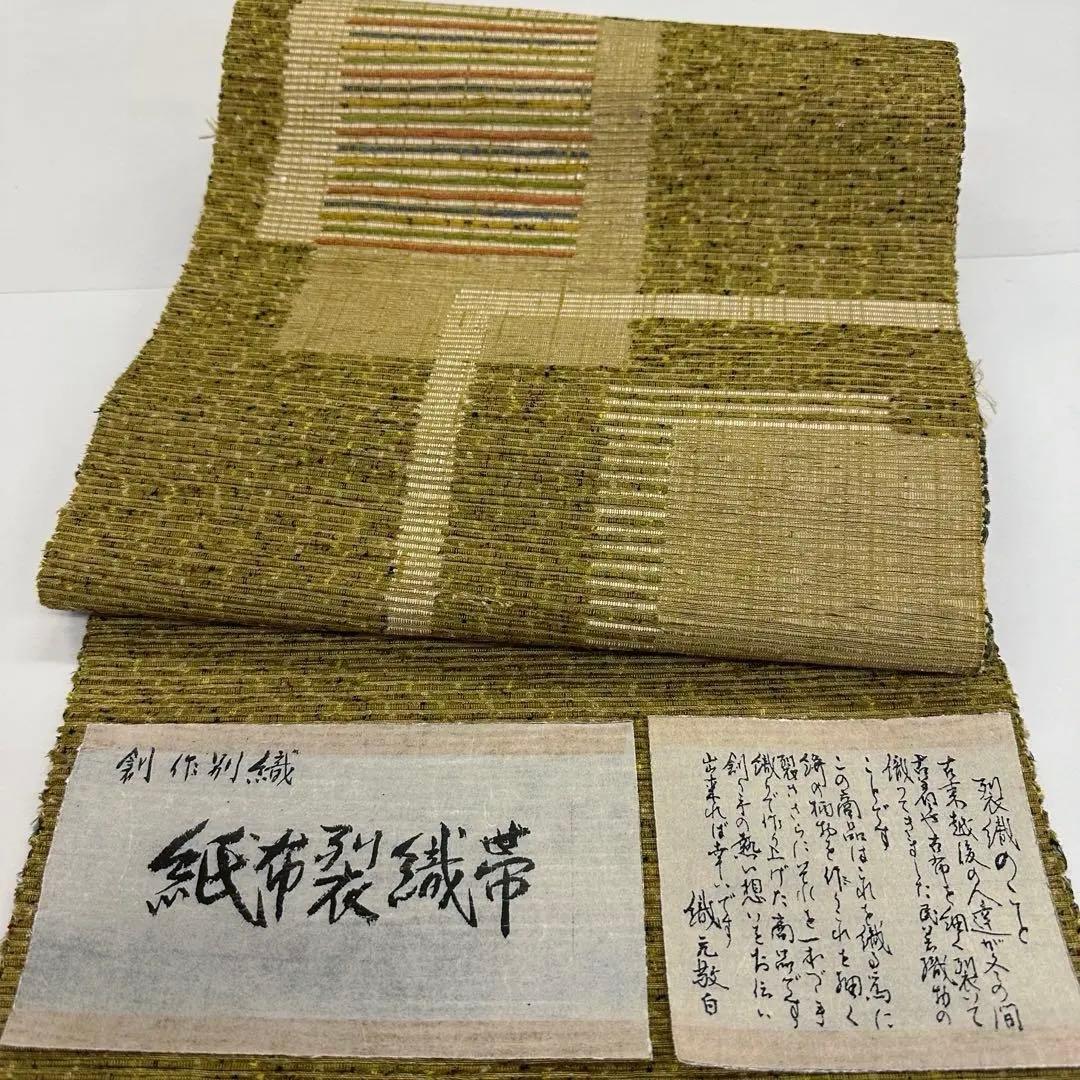 創作別織
紙布裂織帯
裂織のこと
古来越後の人達が冬の間
古着や古布を細く裂いて
織ってきました民芸織物の
ことです
この商品はこれを織る為に
絣の柄物を作りこれを細く
裂きさらにそれを一本づゝ手
織りで作り上げた商品です
創り手の熱い想いをお伝い
出来れば幸いです
織元敬白